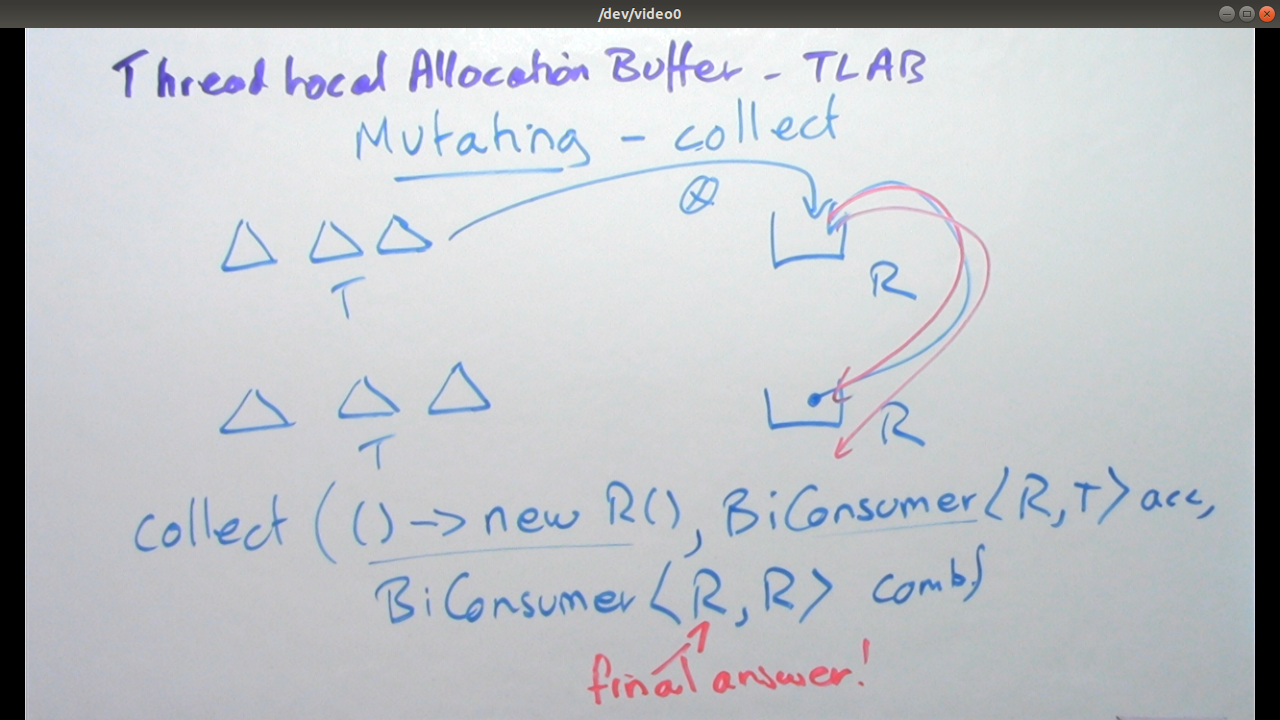 /dev/video0
Thread Local Allocation Buffer - TLAB
Mutating - collect
R
T
R
T
collect (() -> new R(), BiConsumer<R,T> acc,
BiConsumer<R,R> comb)
final answer!